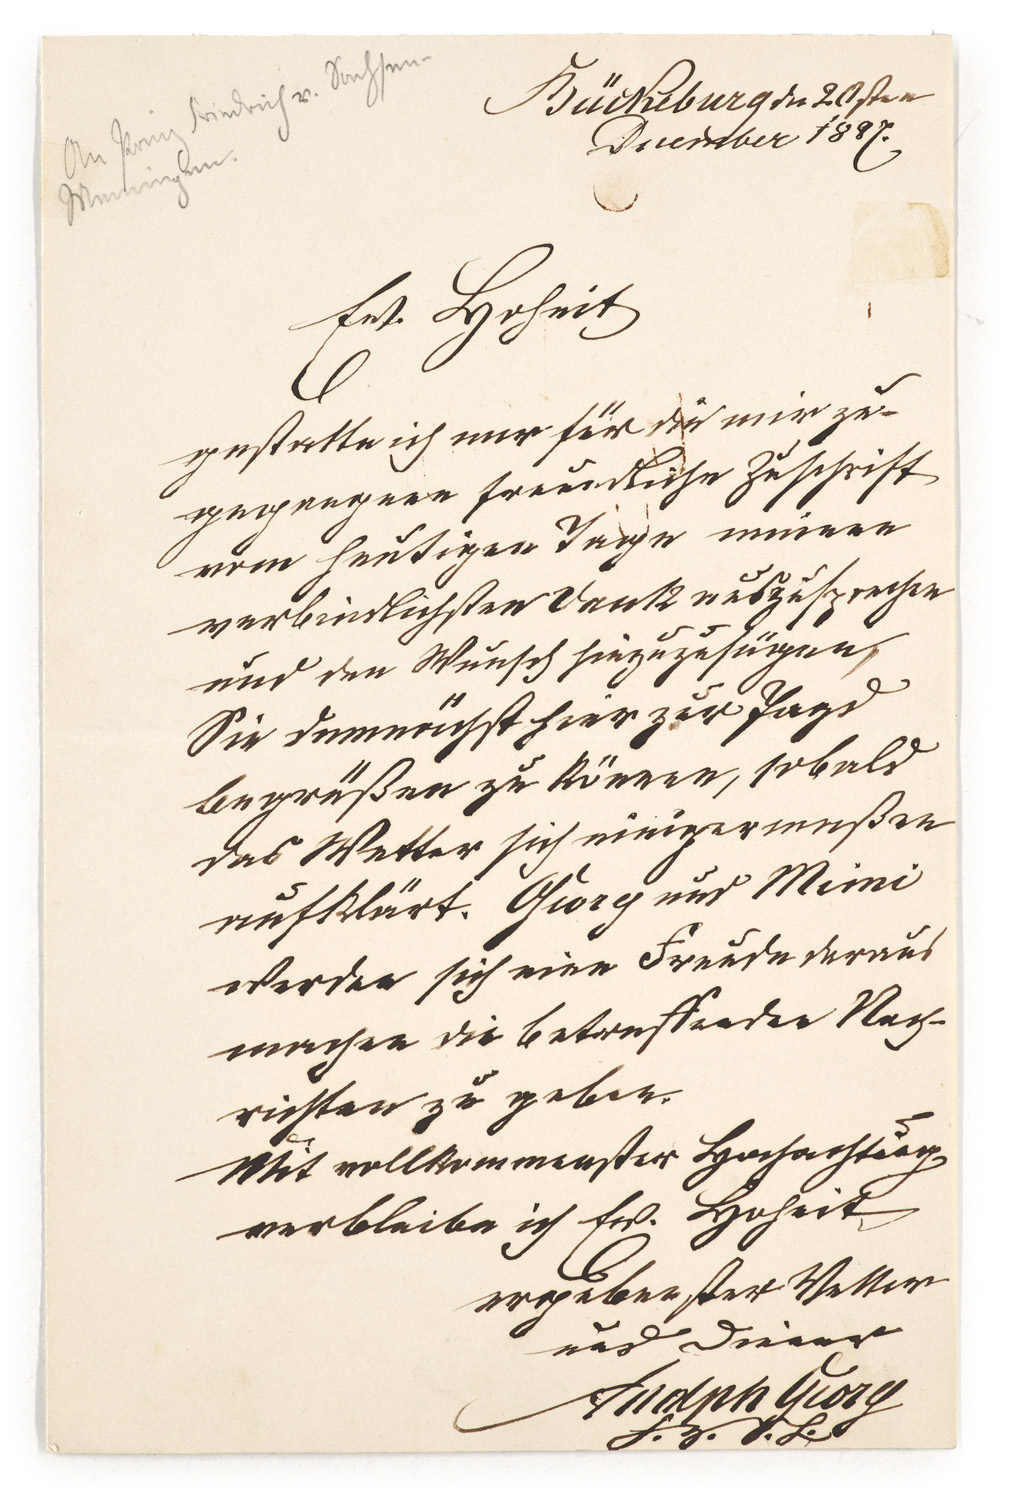 An Prinz Friedrich v. Sachsen-
Meiningen.
Bückeburg den 20sten
December 1887.
Ew. Hoheit
gestatte ich mir für die mir zu-
gegangene freundliche Zuschrift
vom heutigen Tage meinen
verbindlichsten Dank auszusprechen
und den Wunsch hinzuzufügen,
Sie demnächst hier zur Jagd
begrüßen zu können, sobald
das Wetter sich einigermaßen
aufklärt. Georg und Mimi
werden sich eine Freude daraus
machen die betreffenden Nach-
richten zu geben.
Mit vollkommenster Hochachtung
verbleibe ich Ew. Hoheit
ergebenster Vetter
und Diener
Adolph Georg
F. z. S. L.